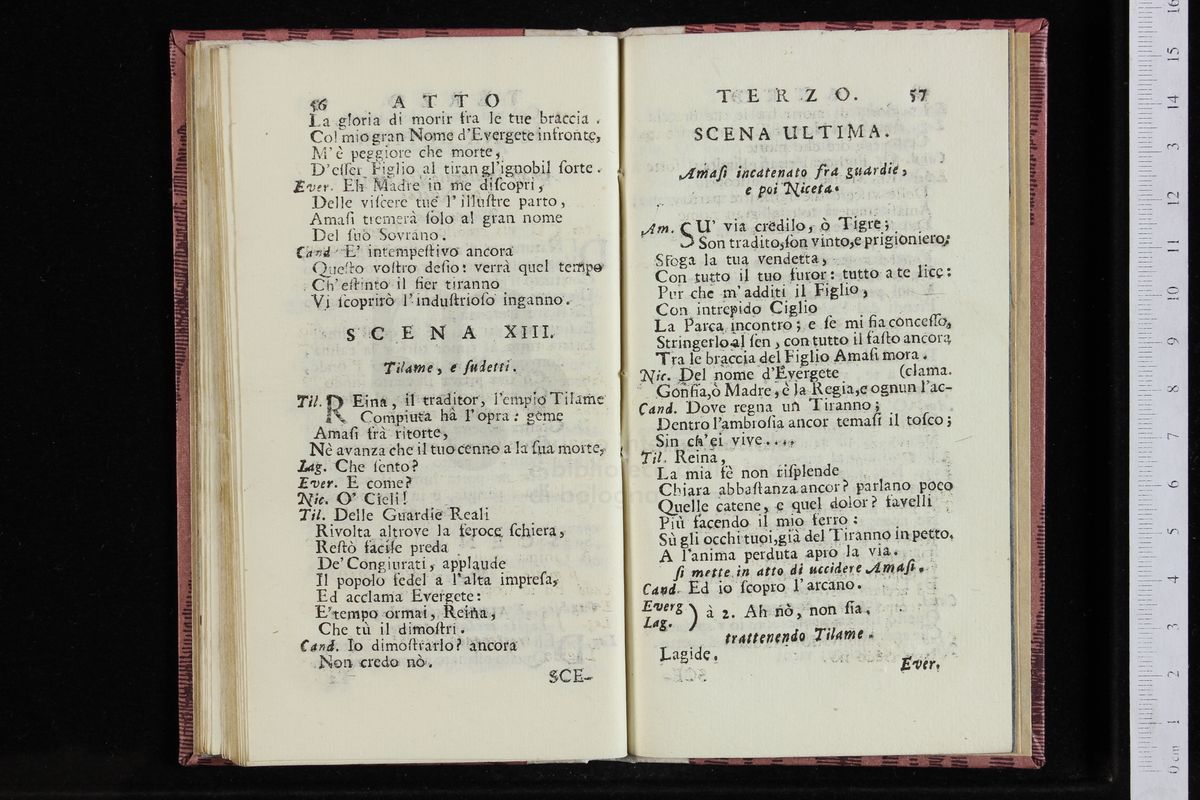 56 ATTO
La gloria di morir fra le tue braccia .
Col mio gran Nome d'Evergete infronte,
M'è peggiore che morte,
D'eſſer Figlio al tiran gl'ignobil ſorte .
Ever. Eh Madre in me diſcopri,
Delle viſcere tue l'illuſtre parto,
Amaſi tremerà ſolo al gran nome
Del ſuo Sovrano.
Cand E' intempeſtivo ancora
Queſto voſtro deſio: verrà quel tempo
Ch'eſtinto il fier tiranno
Vi ſcoprirò l'induſtrioſo inganno.
SCENA XIII.
Tilame, e ſudetti.
Til. REina, il traditor, l'empio Tilame
Compiuta hà l'opra: geme
Amaſi frà ritorte,
Nè avanza che il tuo cenno a la ſua morte,
Lag. Che ſento?
Ever. E come?
Nic. O' Cieli!
Til. Delle Guardie Reali
Rivolta altrove la feroce ſchiera,
Reſtò facile preda
De' Congiurati, applaude
Il popolo fedel a l'alta impreſa,
Ed acclama Evergete:
E' tempo ormai, Reina,
Che tù il dimoſtri.
Cand. Io dimoſtrarlo? ancora
Non credo nò.
SCE-
TERZO. 57
SCENA ULTIMA.
Amaſi incatenato fra guardie,
e poi Niceta.
Am. SU' via credilo, ò Tigre;
Son tradito, ſon vinto, e prigioniero;
Sfoga la tua vendetta,
Con tutto il tuo furor: tutto a te lice:
Pur che m'additi il Figlio,
Con intrepido Ciglio
La Parca incontro; e ſe mi fia conceſſo,
Stringerlo al ſen, con tutto il faſto ancora
Tra le braccia del Figlio Amaſi mora.
Nic. Del nome d'Evergete (clama.
Gonfia, ò Madre, è la Regia, e ognun l'ac-
Cand. Dove regna un Tiranno;
Dentro l'ambroſia ancor temaſi il toſco;
Sin ch'ei vive....
Til. Reina,
La mia fè non riſplende
Chiara abbaſtanza ancor? parlano poco
Quelle catene, e quel dolor? favelli
Più facendo il mio ferro:
Sù gli occhi tuoi, già del Tiranno in petto,
A l'anima perduta apro la via.
ſi mette in atto di uccidere Amaſi.
Cand. Ed io ſcopro l'arcano.
Everg
Lag. ) à 2. Ah nò, non ſia.
trattenendo Tilame.
Lagide.
Ever.